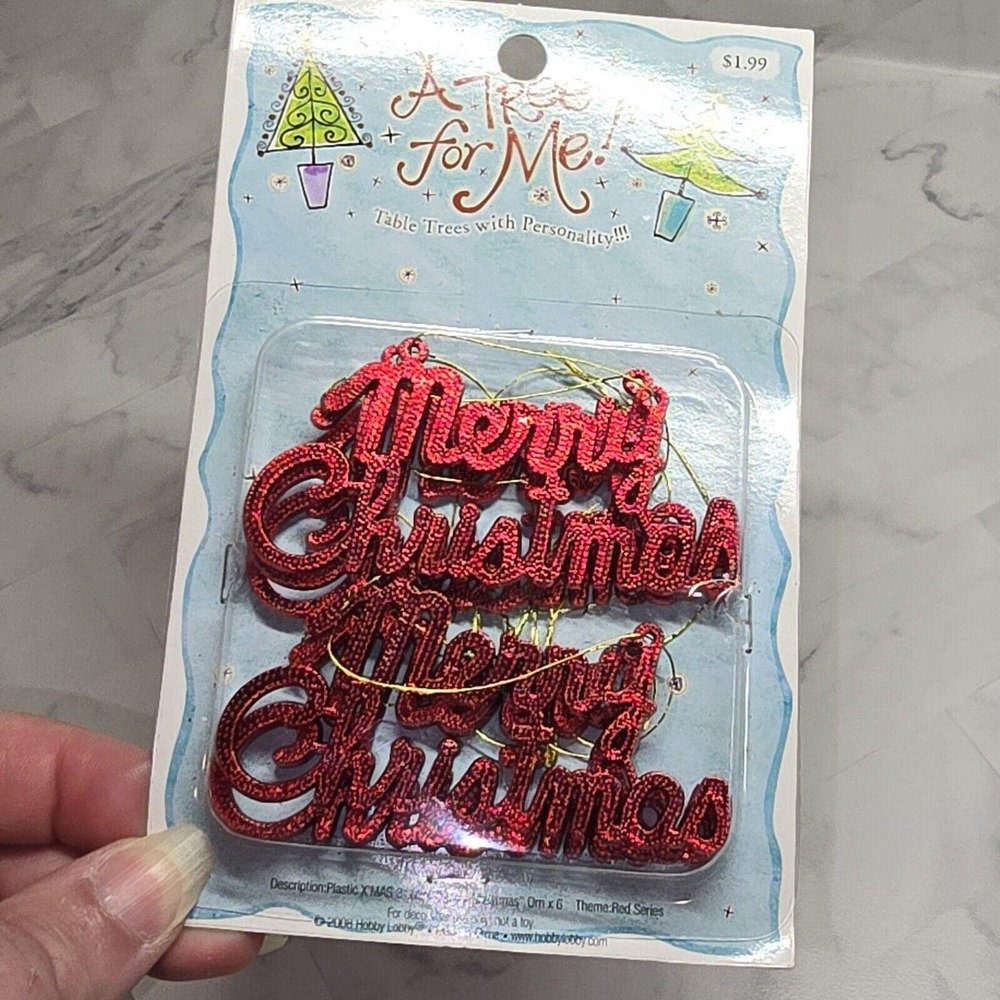 $1.99
A Tree
for Me!
Table Trees with Personality!!!
Merry
Christmas
Merry
Christmas
Description:Plastic X'MAS Orn x 6 Theme:Red Series
For not a toy.
© 2008 Hobby Lobby® • • www.hobbylobby.com